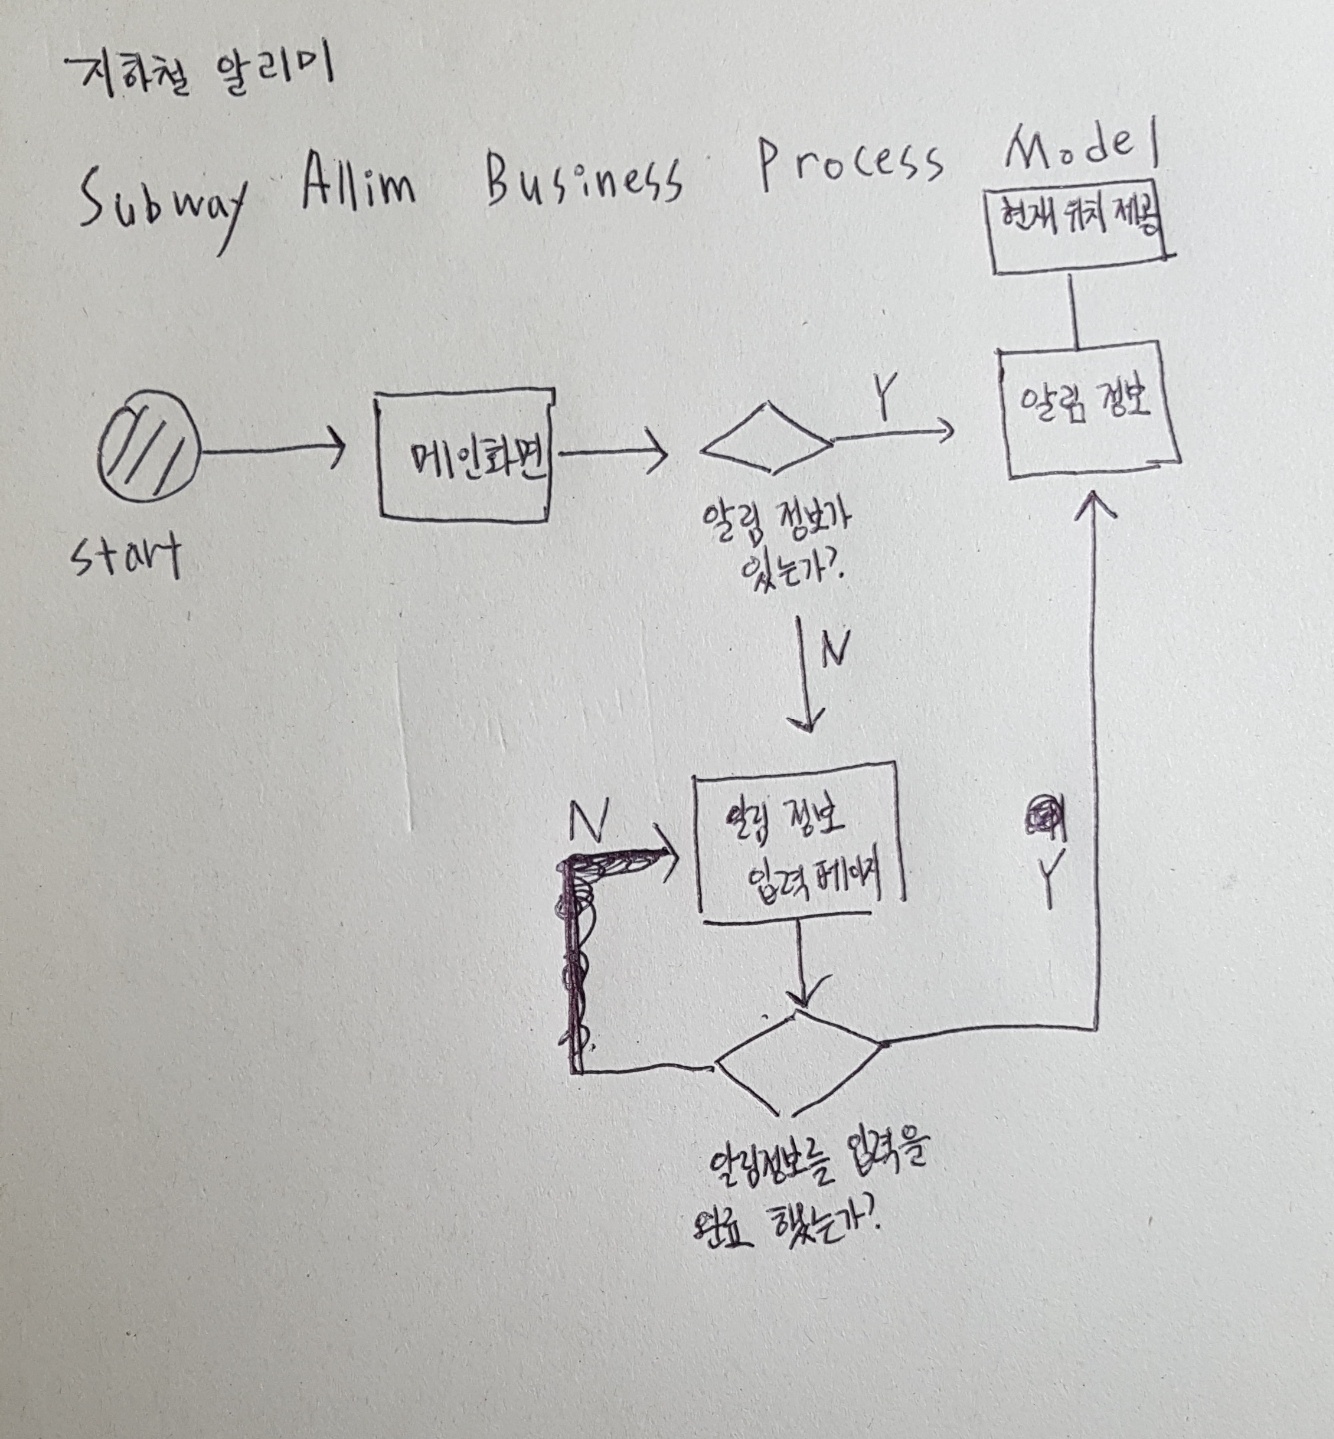 지하철 알리미
Subway Allim Business Process Model
현재 위치 제공
알림 정보
Y
메인화면
start
알림 정보가
있는가?
N
알림 정보
입력 페이지
N
Y
알림정보를 입력을
완료 했는가?